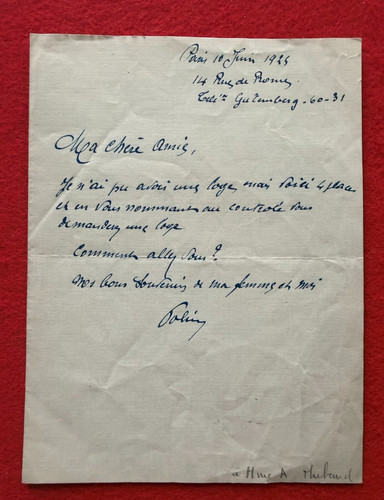 Paris 10 Juin 1924
14 Rue de Rome
Telé. Gutemberg-60-31
Ma chère Amie,
Je n'ai pu avoir une loge, mais voici 4 places
et en vous nommant au controle vous
demanderez une loge
Comment allez vous ?
Nos bons souvenirs de ma femme et moi
Polin
a Mme A Thibaud